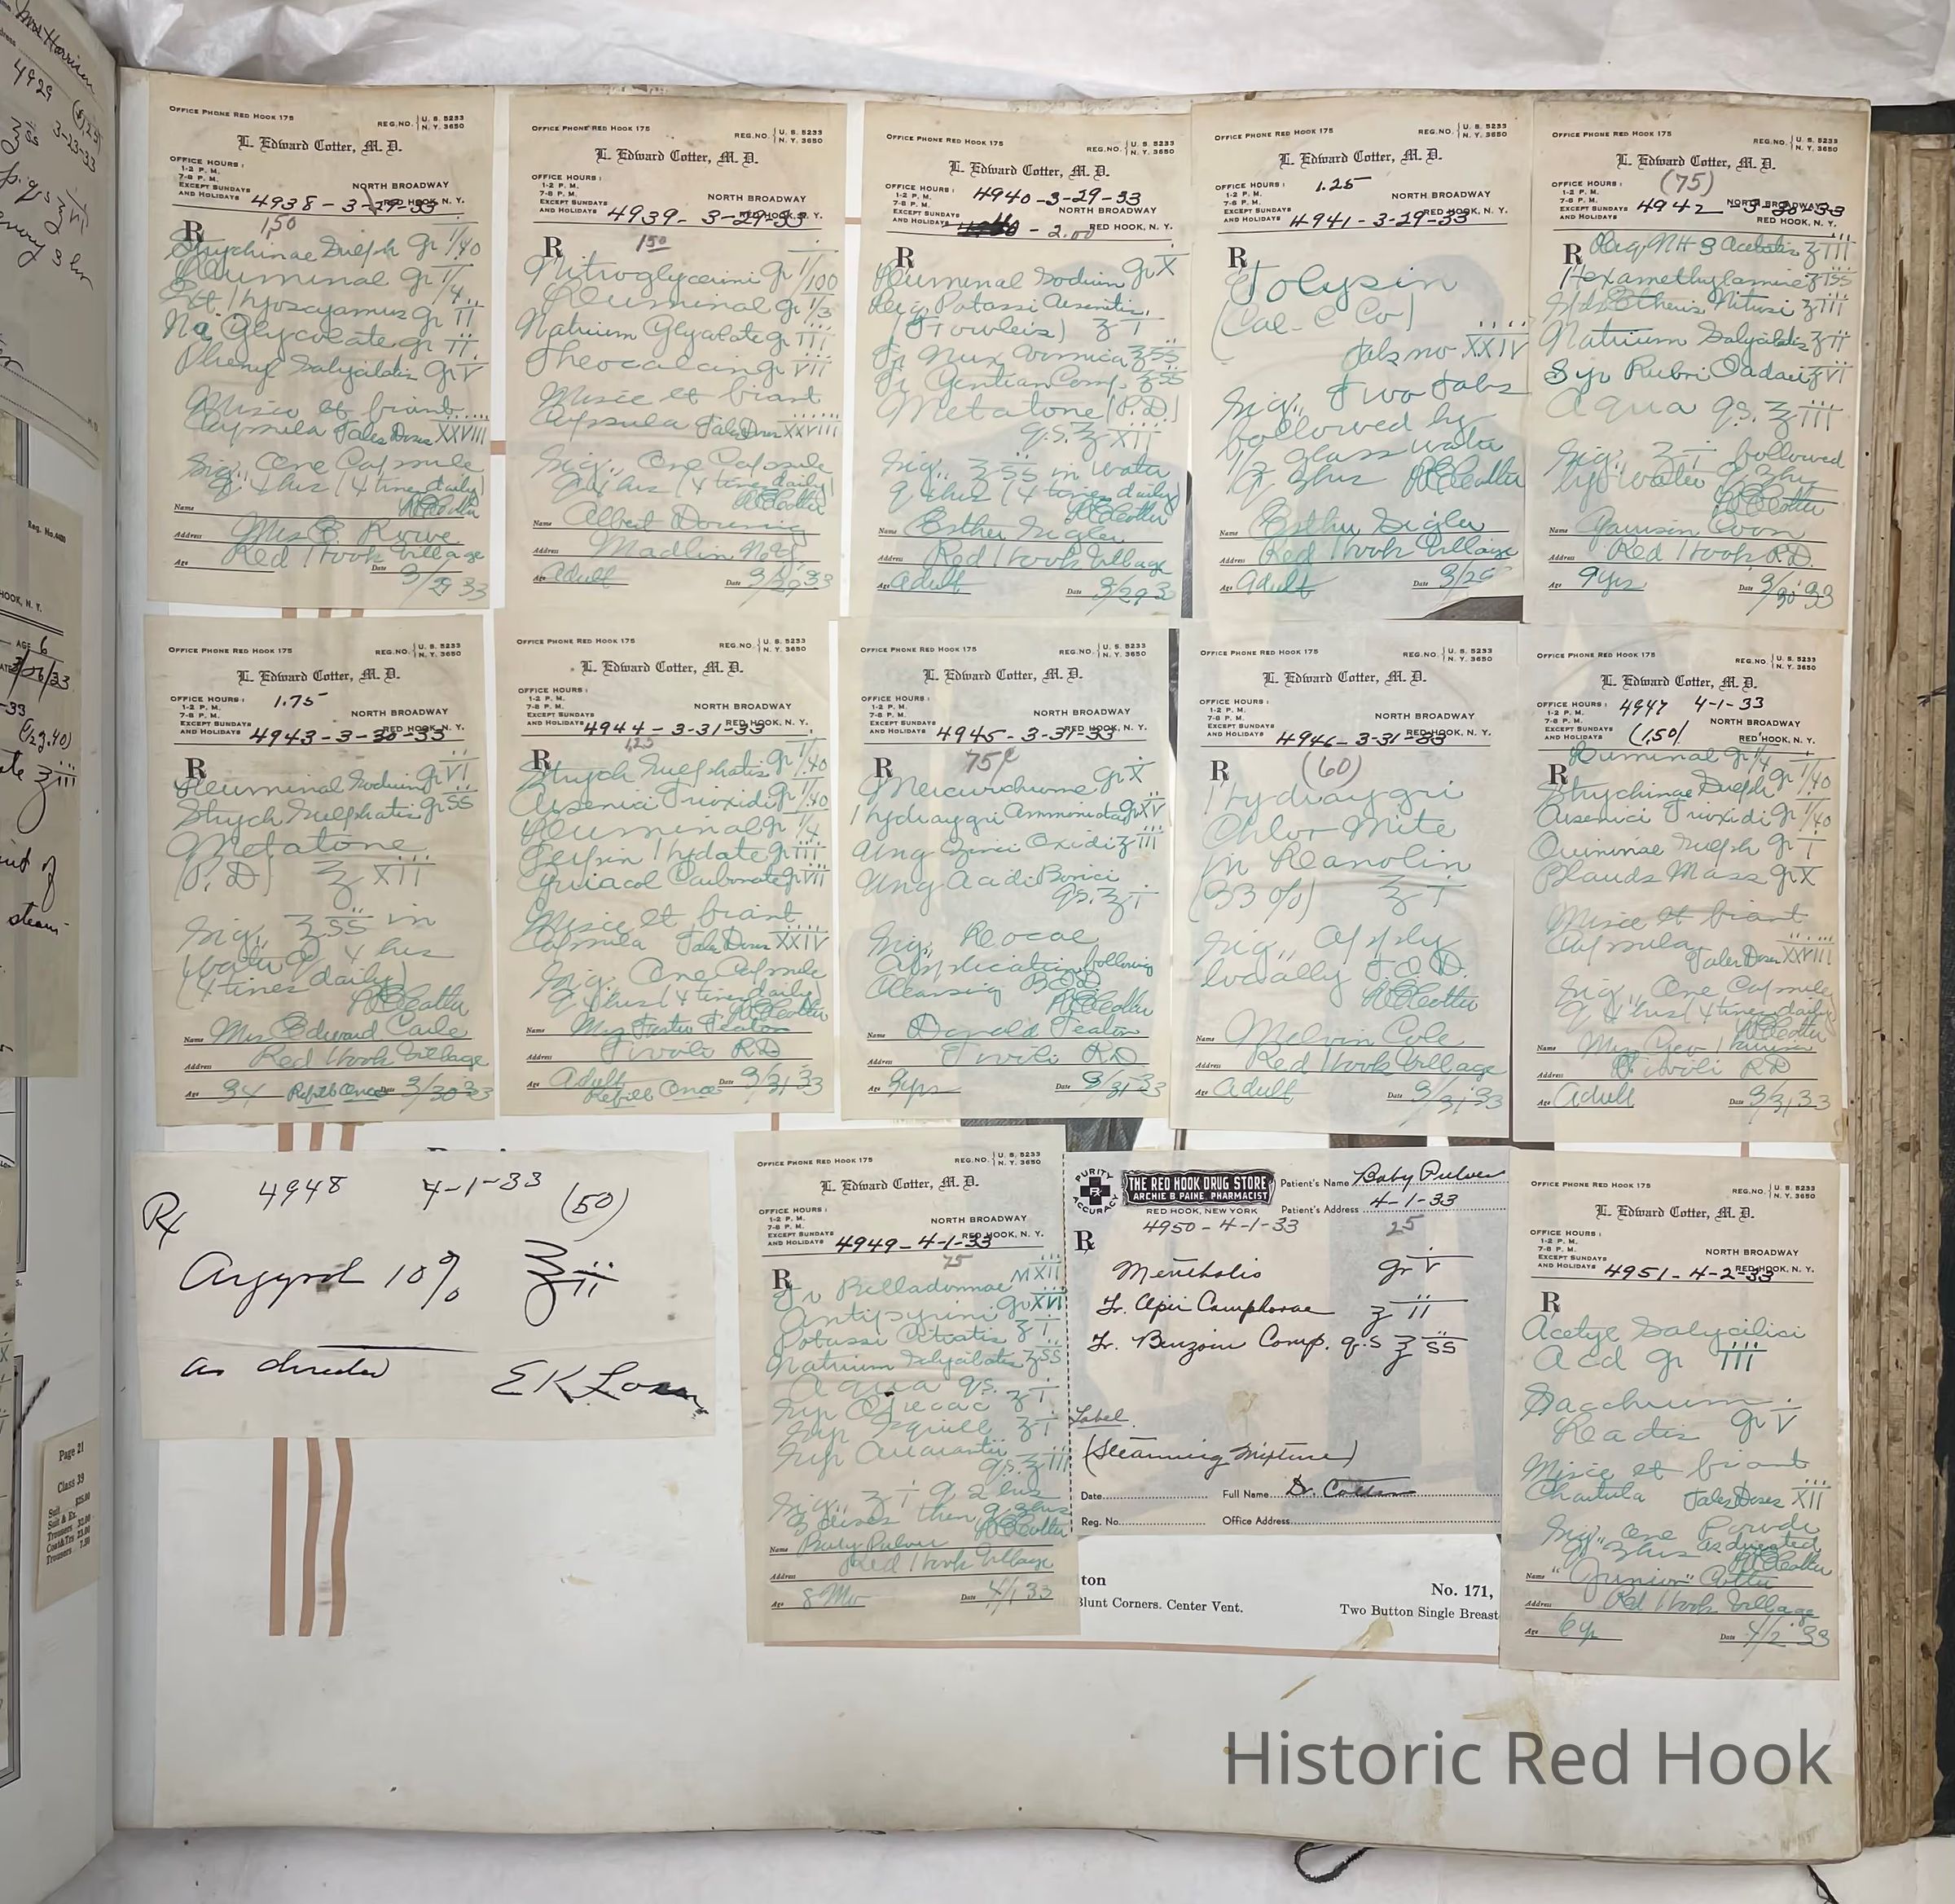 Mrs Harrison
4929
3-23-33
every 3 hr
Reg. No.
HOOK, N. Y.
AGE 6
steam-
Page 21
Class 39
Suit $25.00
Suit & Ex.
Trousers 32.00
Coat&Trs 23.00
Trousers 7.50
OFFICE PHONE RED HOOK 175
REG.NO. { U. S. 5233
N. Y. 3650
L. Edward Cotter, M. D.
OFFICE HOURS:
1-2 P. M.
7-8 P. M.
EXCEPT SUNDAYS
AND HOLIDAYS
NORTH BROADWAY
RED HOOK, N. Y.
4938-3-29-33
1.50
R
Strychinae Sulph gr 1/40
Luminal gr 1/4
Ext Hyoscyamus gr ii
Na Glycolate gr ii
Phenyl Salycilatis gr V
Misce et fiant
Capsula Tales Doses XXVIII
Sig., One Capsule
q 4 hrs (4 times daily)
LECotter
Name
Mrs E. Rowe
Address Red Hook Village
Age Date 3/29 33
OFFICE PHONE RED HOOK 175
REG.NO. { U. S. 5233
N. Y. 3650
L. Edward Cotter, M. D.
OFFICE HOURS:
1-2 P. M.
7-8 P. M.
EXCEPT SUNDAYS
AND HOLIDAYS
NORTH BROADWAY
RED HOOK, N. Y.
4939-3-29-33
150
R
Nitroglycerini gr 1/100
Luminal gr 1/3
Natrium Glycolate gr iii
Theocalcin gr vii
Misce et fiant
Capsula Tales Doses XXVIII
Sig., One Capsule
q 4 hrs (4 times daily)
LECotter
Name Albert Downing
Address Madlin, N.Y.
Age Adult Date 3/29 33
OFFICE PHONE RED HOOK 175
REG.NO. { U. S. 5233
N. Y. 3650
L. Edward Cotter, M. D.
OFFICE HOURS:
1-2 P. M.
7-8 P. M.
EXCEPT SUNDAYS
AND HOLIDAYS
4940-3-29-33
NORTH BROADWAY
RED HOOK, N. Y.
- 2.00
R
Luminal Sodium gr X
Liq Potassi Arsenitis
(Fowlers) ʒ i
Tr Nux Vomica ℥ ss
Tr Gentian Comp. ℥ ss
Metatone (P.D)
q.s. ℥ XII
Sig., ℥ ss in water
q 4 hrs (4 times daily)
LECotter
Name Esther Sigler
Address Red Hook Village
Age Adult Date 3/29 3
OFFICE PHONE RED HOOK 175
REG.NO. { U. S. 5233
N. Y. 3650
L. Edward Cotter, M. D.
OFFICE HOURS:
1-2 P. M.
7-8 P. M.
EXCEPT SUNDAYS
AND HOLIDAYS
1.25
NORTH BROADWAY
RED HOOK, N. Y.
4941-3-29-33
R
Tolysin
(Cal-C Co)
Tabs no XXIV
Sig., Two Tabs
followed by
1/2 glass water
q 3 hrs LECotter
Name Esther Sigler
Address Red Hook Village
Age Adult Date 3/29
OFFICE PHONE RED HOOK 175
REG.NO. { U. S. 5233
N. Y. 3650
L. Edward Cotter, M. D.
OFFICE HOURS:
1-2 P. M.
7-8 P. M.
EXCEPT SUNDAYS
AND HOLIDAYS
(75)
4942-3-30-33
NORTH BROADWAY
RED HOOK, N. Y.
R
Liq NH 3 Acetatis ʒ iii
Hexamethylamine ʒ iss
Spts Etheris Nitrosi ʒ iii
Natrium Salycilatis ʒ ii
Syr Rubri ʒ vi
Aqua q.s. ℥ iii
Sig., ʒ i followed
by water q 3 hrs
LECotter
Name Coon
Address Red Hook, R.D.
Age 9 yrs Date 3/30 33
OFFICE PHONE RED HOOK 175
REG.NO. { U. S. 5233
N. Y. 3650
L. Edward Cotter, M. D.
OFFICE HOURS:
1-2 P. M.
7-8 P. M.
EXCEPT SUNDAYS
AND HOLIDAYS
1.75
NORTH BROADWAY
RED HOOK, N. Y.
4943-3-30-33
R
Luminal Sodium gr VI
Strych Sulphatis gr ss
Metatone
(P. D) ℥ XII
Sig., ℥ ss in
water q 4 hrs
(4 times daily)
LECotter
Name Mrs Edward Carle
Address Red Hook Village
Age 34 Refill Once Date 3/30 33
OFFICE PHONE RED HOOK 175
REG.NO. { U. S. 5233
N. Y. 3650
L. Edward Cotter, M. D.
OFFICE HOURS:
1-2 P. M.
7-8 P. M.
EXCEPT SUNDAYS
AND HOLIDAYS
NORTH BROADWAY
RED HOOK, N. Y.
4944-3-31-33
1.25
R
Strych Sulphatis gr 1/40
Arsenici Trioxidi gr 1/40
Luminal gr 1/4
Terpin Hydate gr iii
Guiacol Carbonate gr vii
Misce et fiant
Capsula Tales Doses XXIV
Sig., One Capsule
q 4 hrs (4 times daily)
LECotter
Name Mrs Foster Teator
Address Tivoli RD
Age Adult Date 3/31 33
Refill Once
OFFICE PHONE RED HOOK 175
REG.NO. { U. S. 5233
N. Y. 3650
L. Edward Cotter, M. D.
OFFICE HOURS:
1-2 P. M.
7-8 P. M.
EXCEPT SUNDAYS
AND HOLIDAYS
NORTH BROADWAY
RED HOOK, N. Y.
4945-3-31-33
75¢
R
Mercurichrome gr X
Hydraygri Ammoniata gr XV
Ung Zinci Oxidi ʒ iii
Ung Acidi Borici
q.s. ℥ i
Sig., Local
Application following
Cleansing B.I.D.
LECotter
Name Donald Teator
Address Tivoli RD
Age 9 yrs Date 3/31 33
OFFICE PHONE RED HOOK 175
REG.NO. { U. S. 5233
N. Y. 3650
L. Edward Cotter, M. D.
OFFICE HOURS:
1-2 P. M.
7-8 P. M.
EXCEPT SUNDAYS
AND HOLIDAYS
NORTH BROADWAY
RED HOOK, N. Y.
4946-3-31-33
(60)
R
Hydraygri
Chlor Mite
in Leanolin
(33 %) ℥ i
Sig., Apply
locally T.I.D.
LECotter
Name Melvin Cole
Address Red Hook Village
Age Adult Date 3/31 33
OFFICE PHONE RED HOOK 175
REG.NO. { U. S. 5233
N. Y. 3650
L. Edward Cotter, M. D.
OFFICE HOURS:
1-2 P. M.
7-8 P. M.
EXCEPT SUNDAYS
AND HOLIDAYS
4947 4-1-33
(1.50)
NORTH BROADWAY
RED HOOK, N. Y.
R
Luminal gr 1/4
Strychinae Sulph gr 1/40
Arsenici Trioxidi gr 1/40
Quininae Sulph gr i
Blauds Mass gr X
Misce et fiant
Capsula
Tales Doses XXVIII
Sig., One Capsule
q 4 hrs (4 times daily)
LECotter
Name Mrs Geo
Address Tivoli RD
Age Adult Date 3/31 33
4948 4-1-33 (50)
Rx
Argyrol 10% ℥ ii
as directed
E K
OFFICE PHONE RED HOOK 175
REG.NO. { U. S. 5233
N. Y. 3650
L. Edward Cotter, M. D.
OFFICE HOURS:
1-2 P. M.
7-8 P. M.
EXCEPT SUNDAYS
AND HOLIDAYS
NORTH BROADWAY
RED HOOK, N. Y.
4949-4-1-33
75
R
Tr Belladonnae M XII
Antipyrini gr XVI
Potassi Citratis ʒ i
Natrium Salycilatis ʒ ss
Aqua q.s. ℥ i
Syr Ipecac
Syr Squill ʒ i
Syr Aurantii
q.s. ℥ iii
Sig., ʒ i q 2 hrs
3 doses then q 3 hrs
LECotter
Name Baby Pulver
Red Hook Village
Address
Age 8 Mo Date 4/1 33
PURITY
Rx
ACCURACY
THE RED HOOK DRUG STORE
ARCHIE B PAINE, PHARMACIST
RED HOOK, NEW YORK
Patient's Name Baby Pulver
Patient's Address 4-1-33
4950-4-1-33 25
R
Mentholis gr V
Tr. Opii Camphorae ʒ ii
Tr. Benzoin Comp. q.s ℥ ss
Label
(Steaming Mixture)
Date Full Name Dr. Cotter
Reg. No. Office Address
ton
Blunt Corners. Center Vent.
No. 171,
Two Button Single Breast
OFFICE PHONE RED HOOK 175
REG.NO. { U. S. 5233
N. Y. 3650
L. Edward Cotter, M. D.
OFFICE HOURS:
1-2 P. M.
7-8 P. M.
EXCEPT SUNDAYS
AND HOLIDAYS
NORTH BROADWAY
RED HOOK, N. Y.
4951-4-2-33
R
Acetyl Salycilici
Acd gr iii
Sacchrum
Leactis gr V
Misce et fiant
Chartula Tales Doses XII
Sig., One Powder
q 3 hrs as directed
LECotter
Name "Junior" Cotter
Address Red Hook Village
Age 6 yr Date 4/2 33
Historic Red Hook